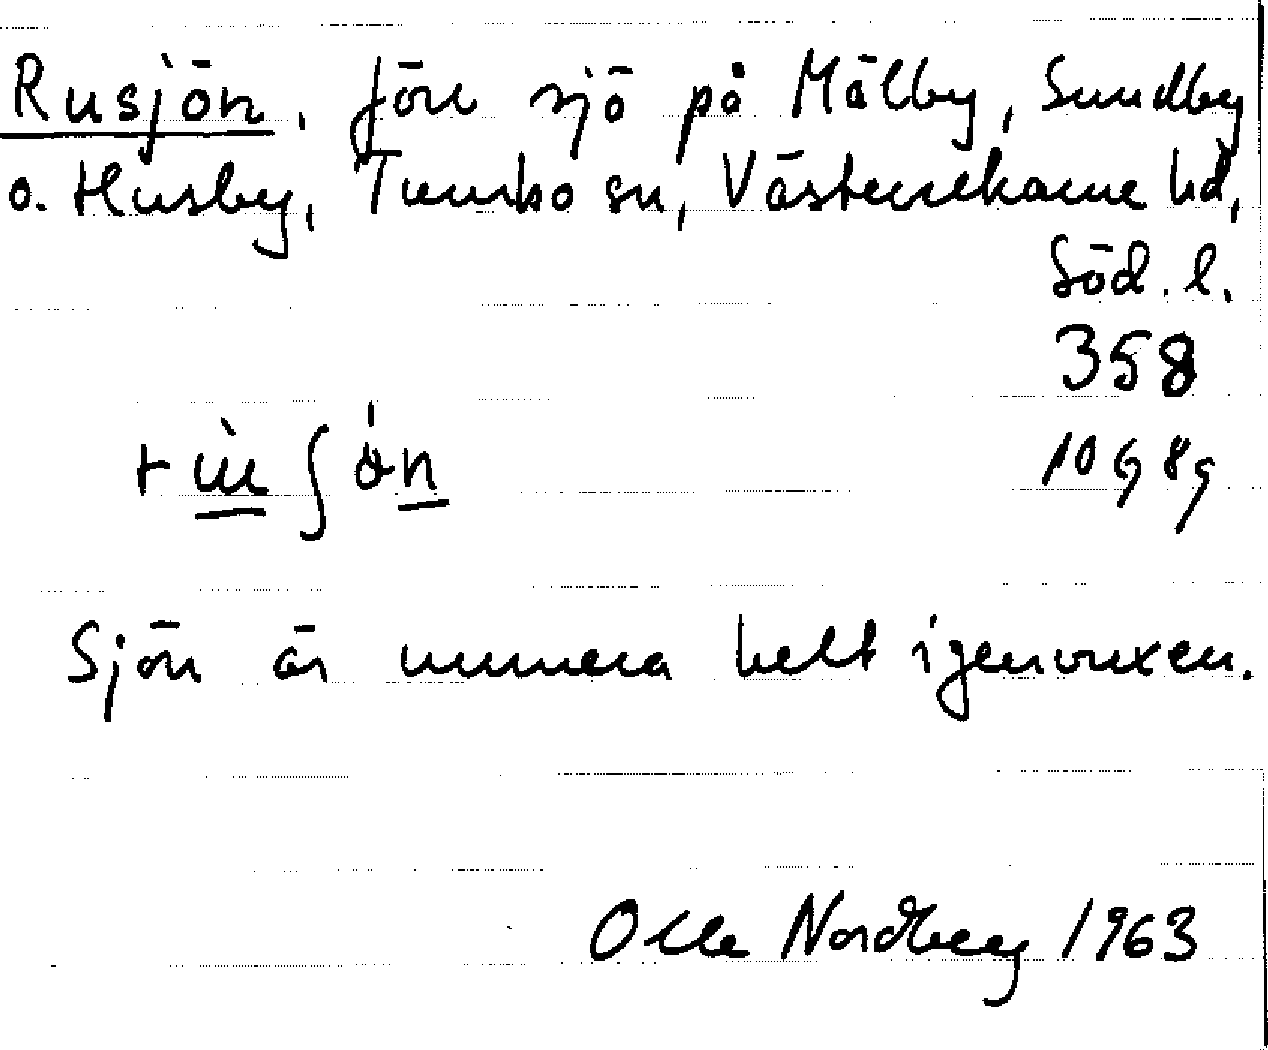 Rusjön, förr sjö på Mälby, Sundby
o. Husby, Tumbo sn, Västerrekarne hd,
Söd. l.
358
10G8g
Sjön är numera helt igenvuxen.
Olle Nordberg 1963